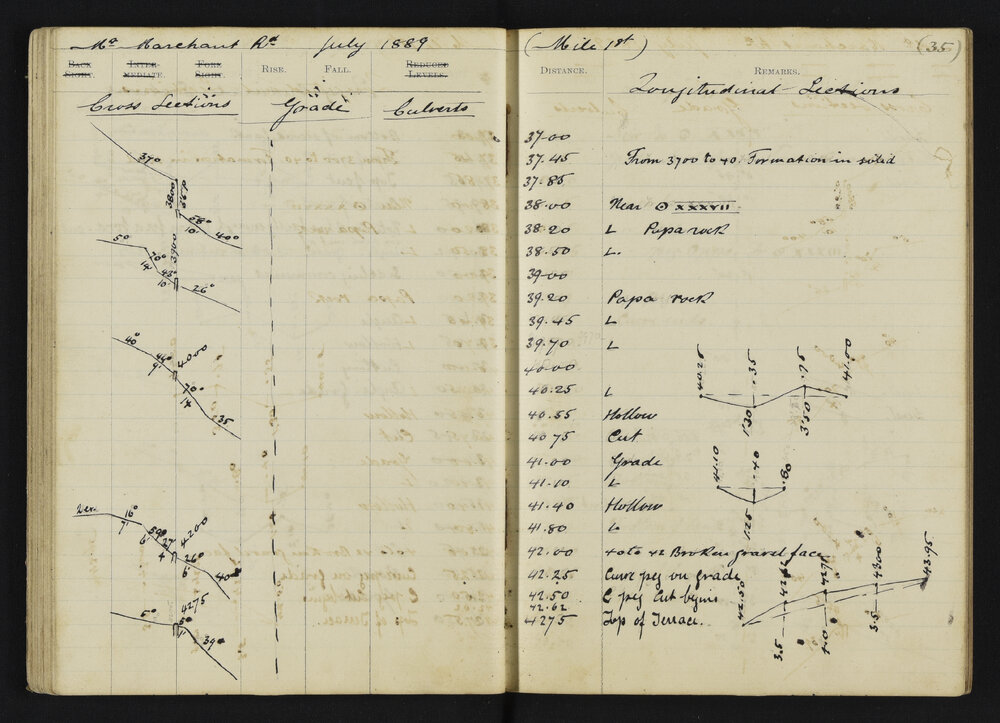 Ma Marchant Rd July 1889
BACK SIGHT. INTER-MEDIATE. FORE SIGHT. RISE. FALL. REDUCED LEVELS.
Cross Sections Grade Culverts
37°
3800
58°
10
40°
5°
3900
70°
14
48°
10
26°
40°
44°
9
4000
70°
14
35
Level
16°
59°
6
27
4
4200
26°
6
40
5°
4275
39°
(Mile 1st) (35)
DISTANCE. REMARKS.
Longitudinal Sections
37-00
37.45 From 3700 to 40. Formation in solid
37.85
38.00 Near ⊙ XXXVII
38.20 L Papa rock
38.50 L.
39-00
39.20 Papa rock
39.45 L
39.70 L
40-00
40.25 L
40.55 Hollow
40 75 Cut
41.00 Grade
41.10 L
41.40 Hollow
41.80 L
42.00 40 to 42 Broken gravel face
42.25 Curve peg on grade
42.50 C peg Cut begins
42.62
4275 Top of Terrace.
40.25
.35
.75
41.00
1.30
3.50
41.10
.40
.80
1.25
42.50
42.62
4275
4300
43.95
3.5
4.0
3.5